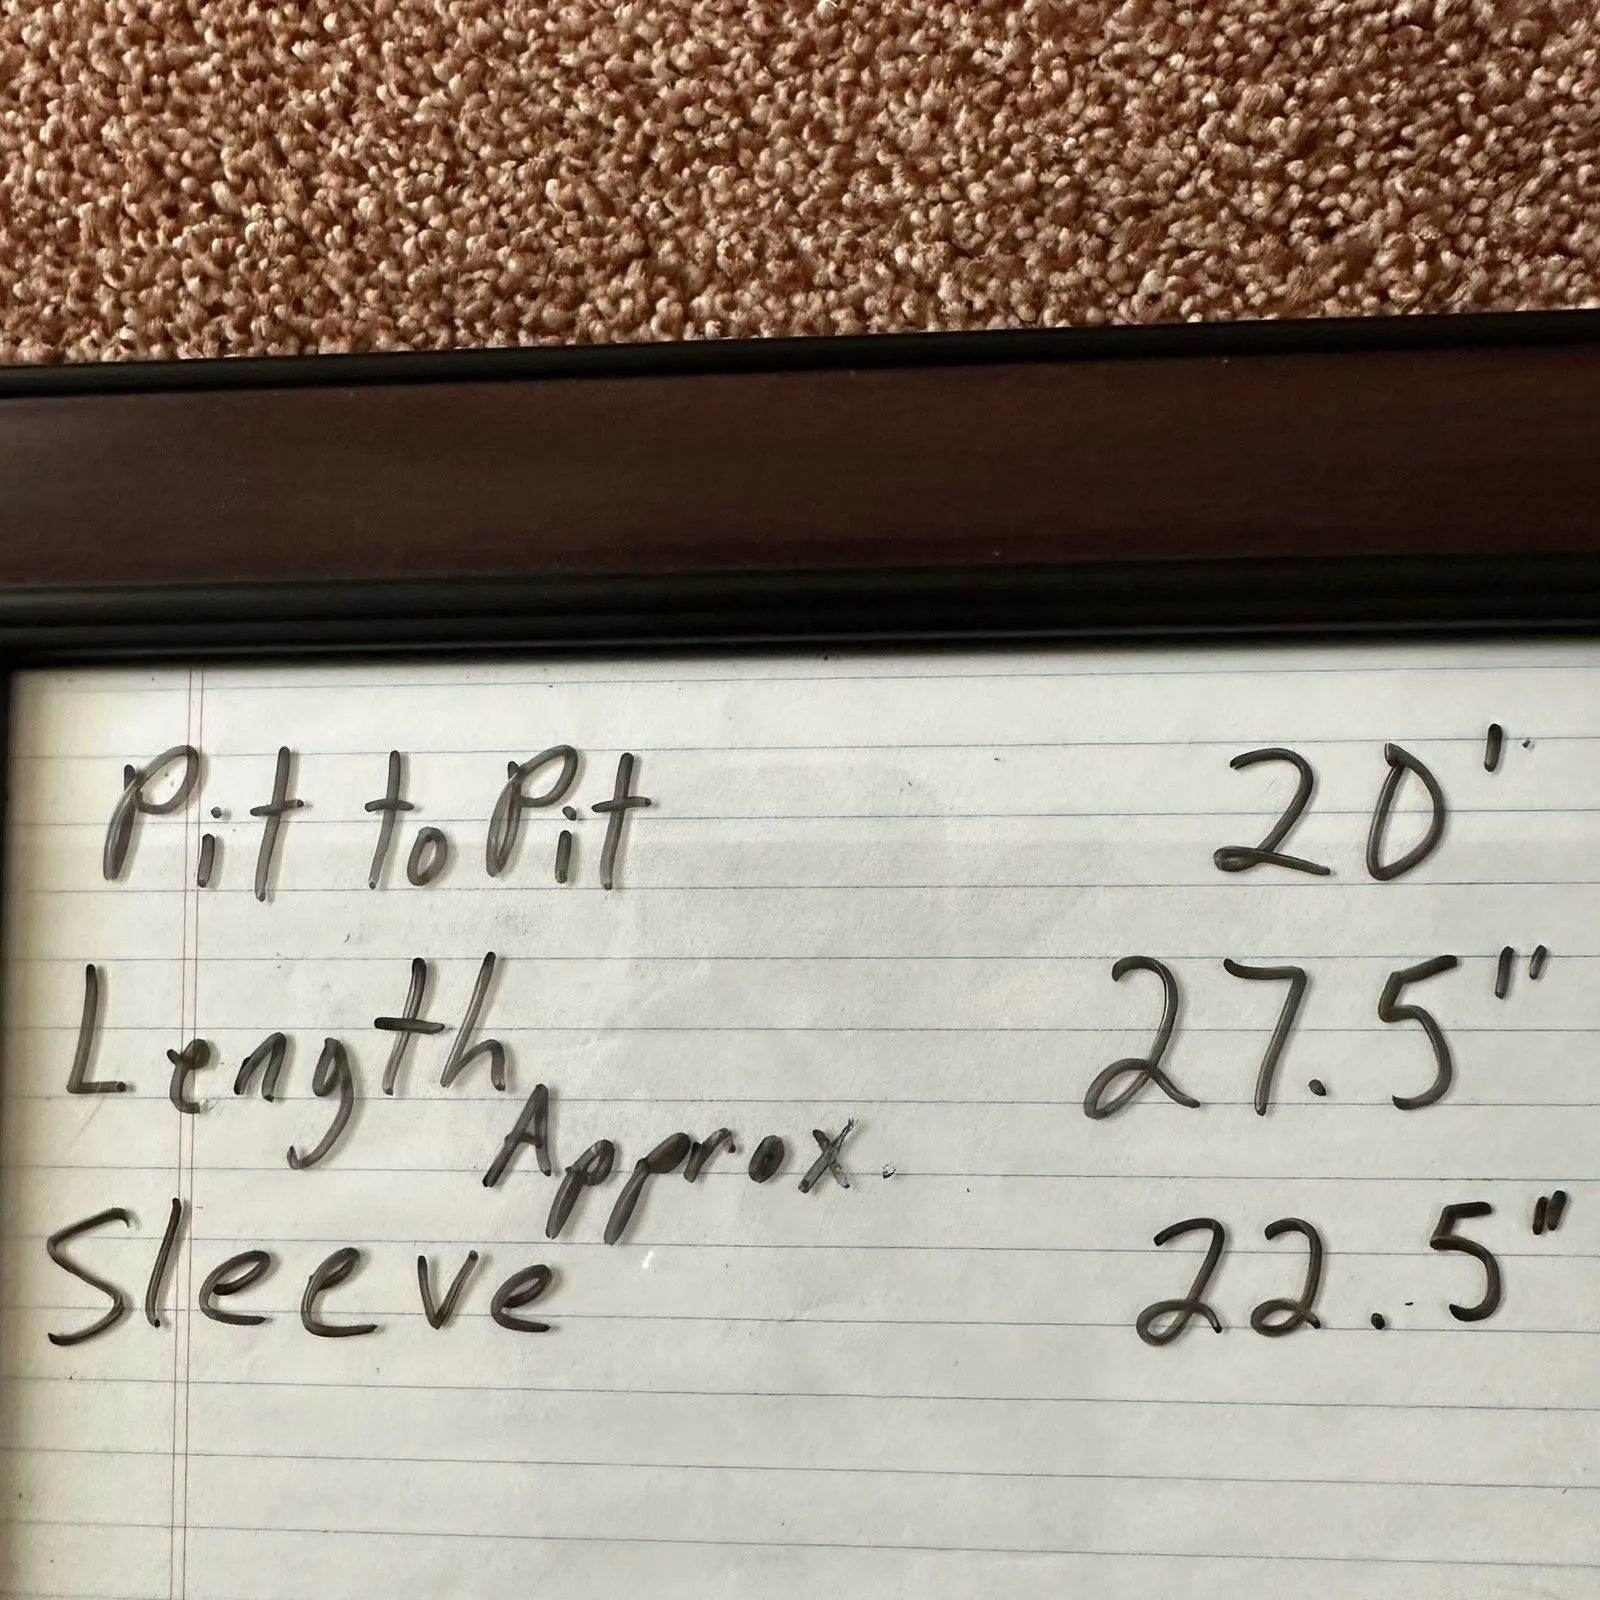 Pit to Pit 20'
Length 27.5"
Approx.
Sleeve 22.5"